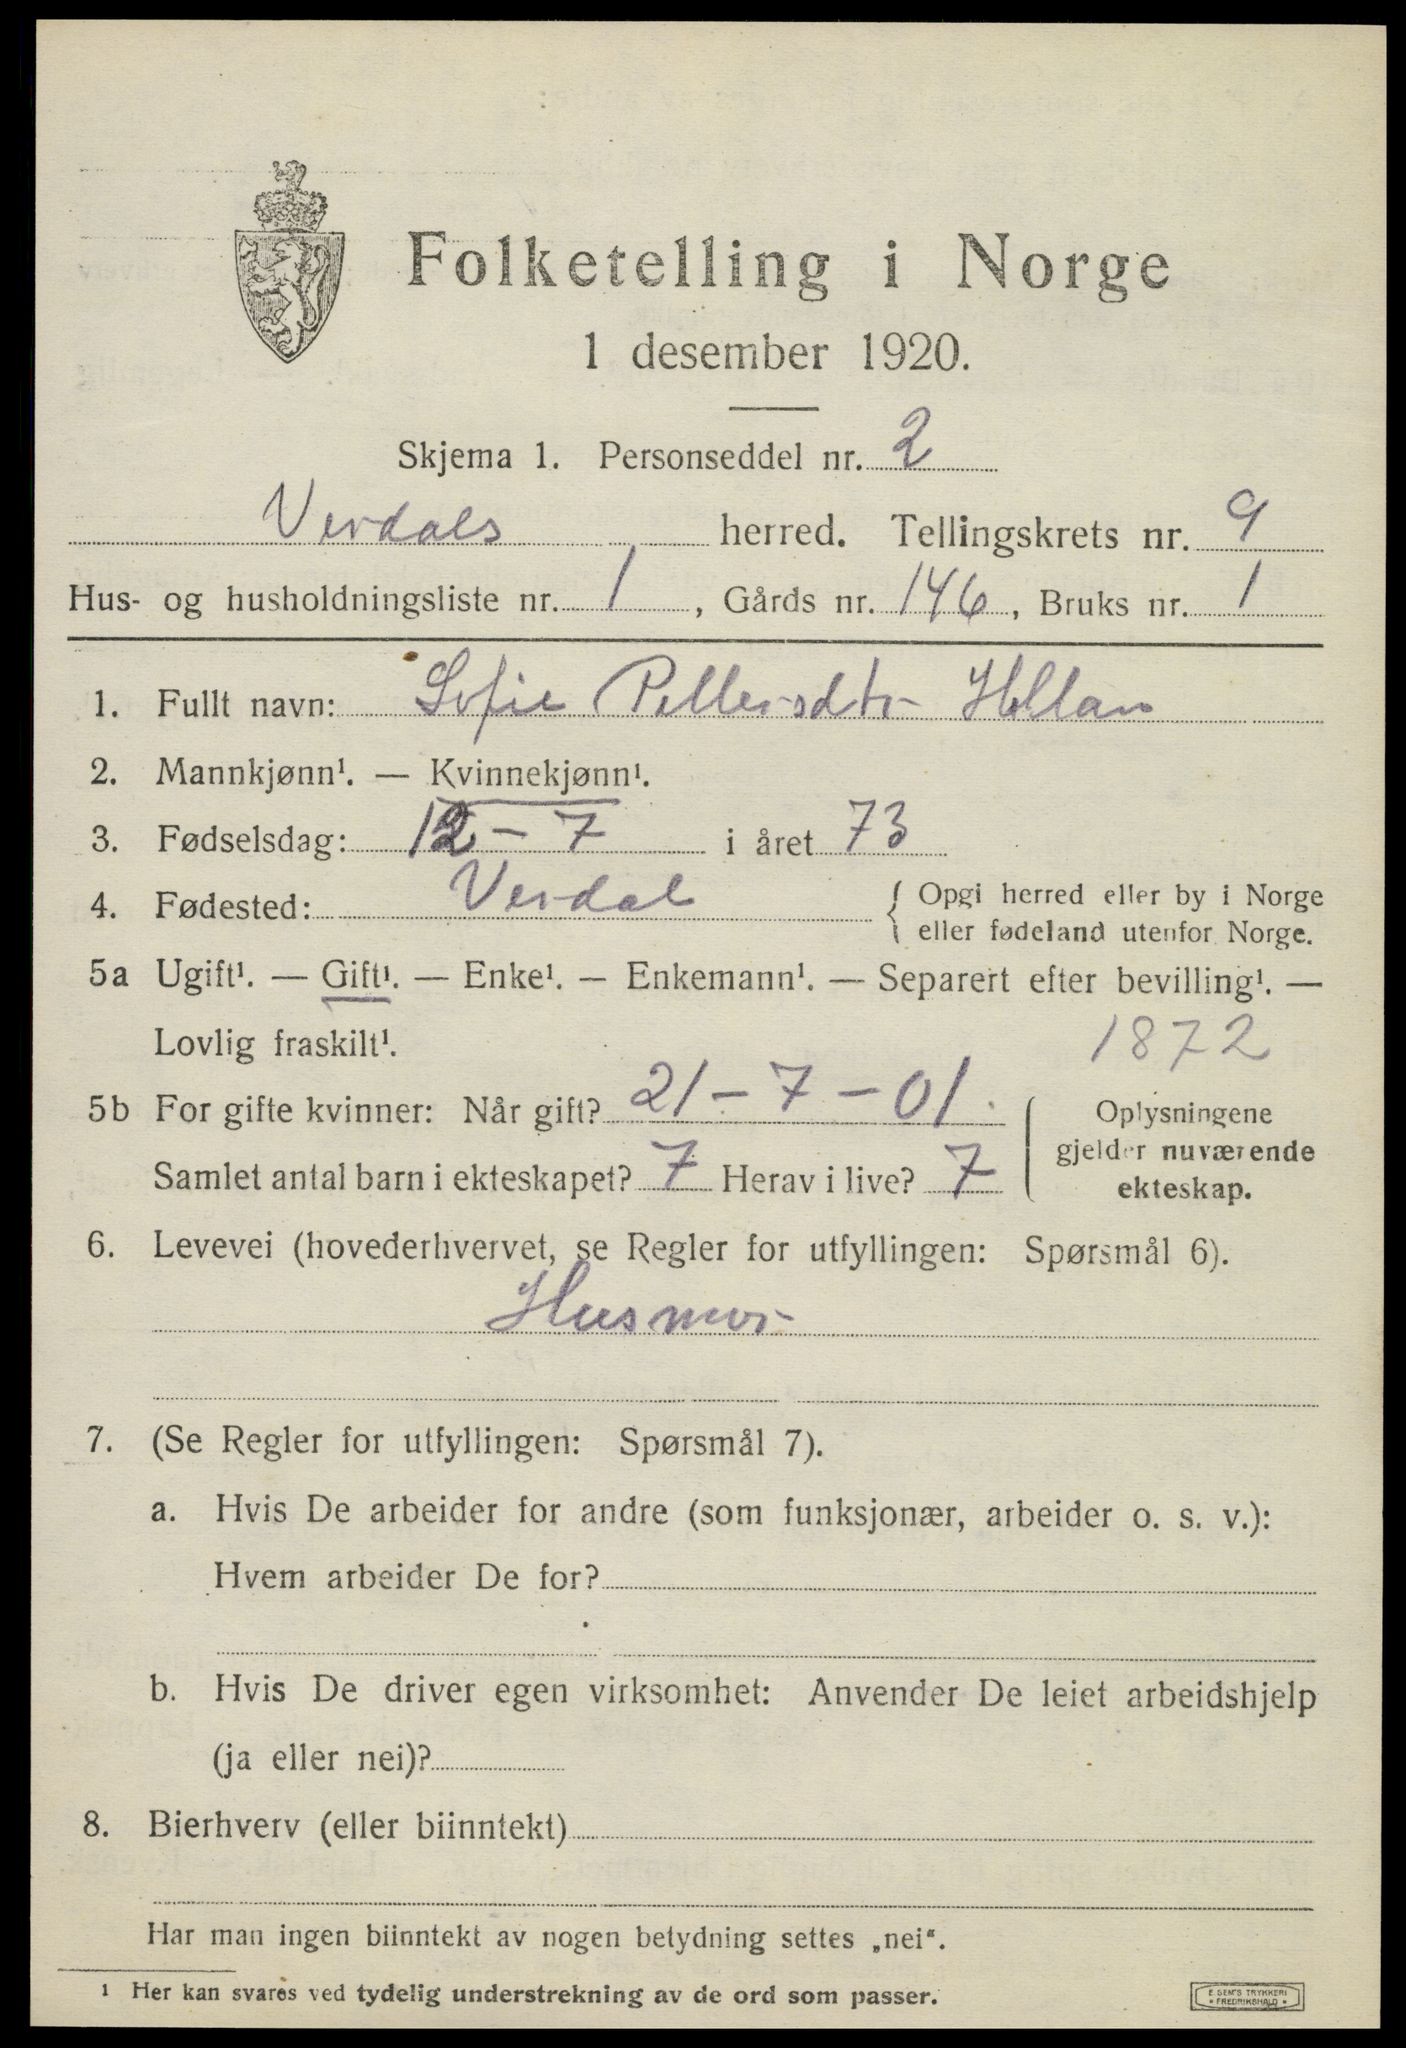 Folketelling i Norge
1 desember 1920.
Skjema 1. Personseddel nr. 2
Verdals herred. Tellingskrets nr. 9
Hus- og husholdningsliste nr. 1, Gårds nr. 146, Bruks nr. 1
1. Fullt navn: Sofie Pettersdtr
2. Mannkjønn¹. — Kvinnekjønn¹.
3. Fødselsdag: 12 – 7 i året 73
4. Fødested: Verdal { Opgi herred eller by i Norge
eller fødeland utenfor Norge.
5a Ugift¹. — Gift¹. — Enke¹. — Enkemann¹. — Separert efter bevilling¹. —
Lovlig fraskilt¹. 1872
5b For gifte kvinner: Når gift? 21 – 7 – 01. { Oplysningene
gjelder nuværende
Samlet antal barn i ekteskapet? 7 Herav i live? 7 ekteskap.
6. Levevei (hovederhvervet, se Regler for utfyllingen: Spørsmål 6).
Husmor
7. (Se Regler for utfyllingen: Spørsmål 7).
a. Hvis De arbeider for andre (som funksjonær, arbeider o. s. v.):
Hvem arbeider De for?
b. Hvis De driver egen virksomhet: Anvender De leiet arbeidshjelp
(ja eller nei)?
8. Bierhverv (eller biinntekt)
Har man ingen biinntekt av nogen betydning settes „nei“.
¹ Her kan svares ved tydelig understrekning av de ord som passer.
E. SEM'S TRYKKERI
FREDRIKSHALD